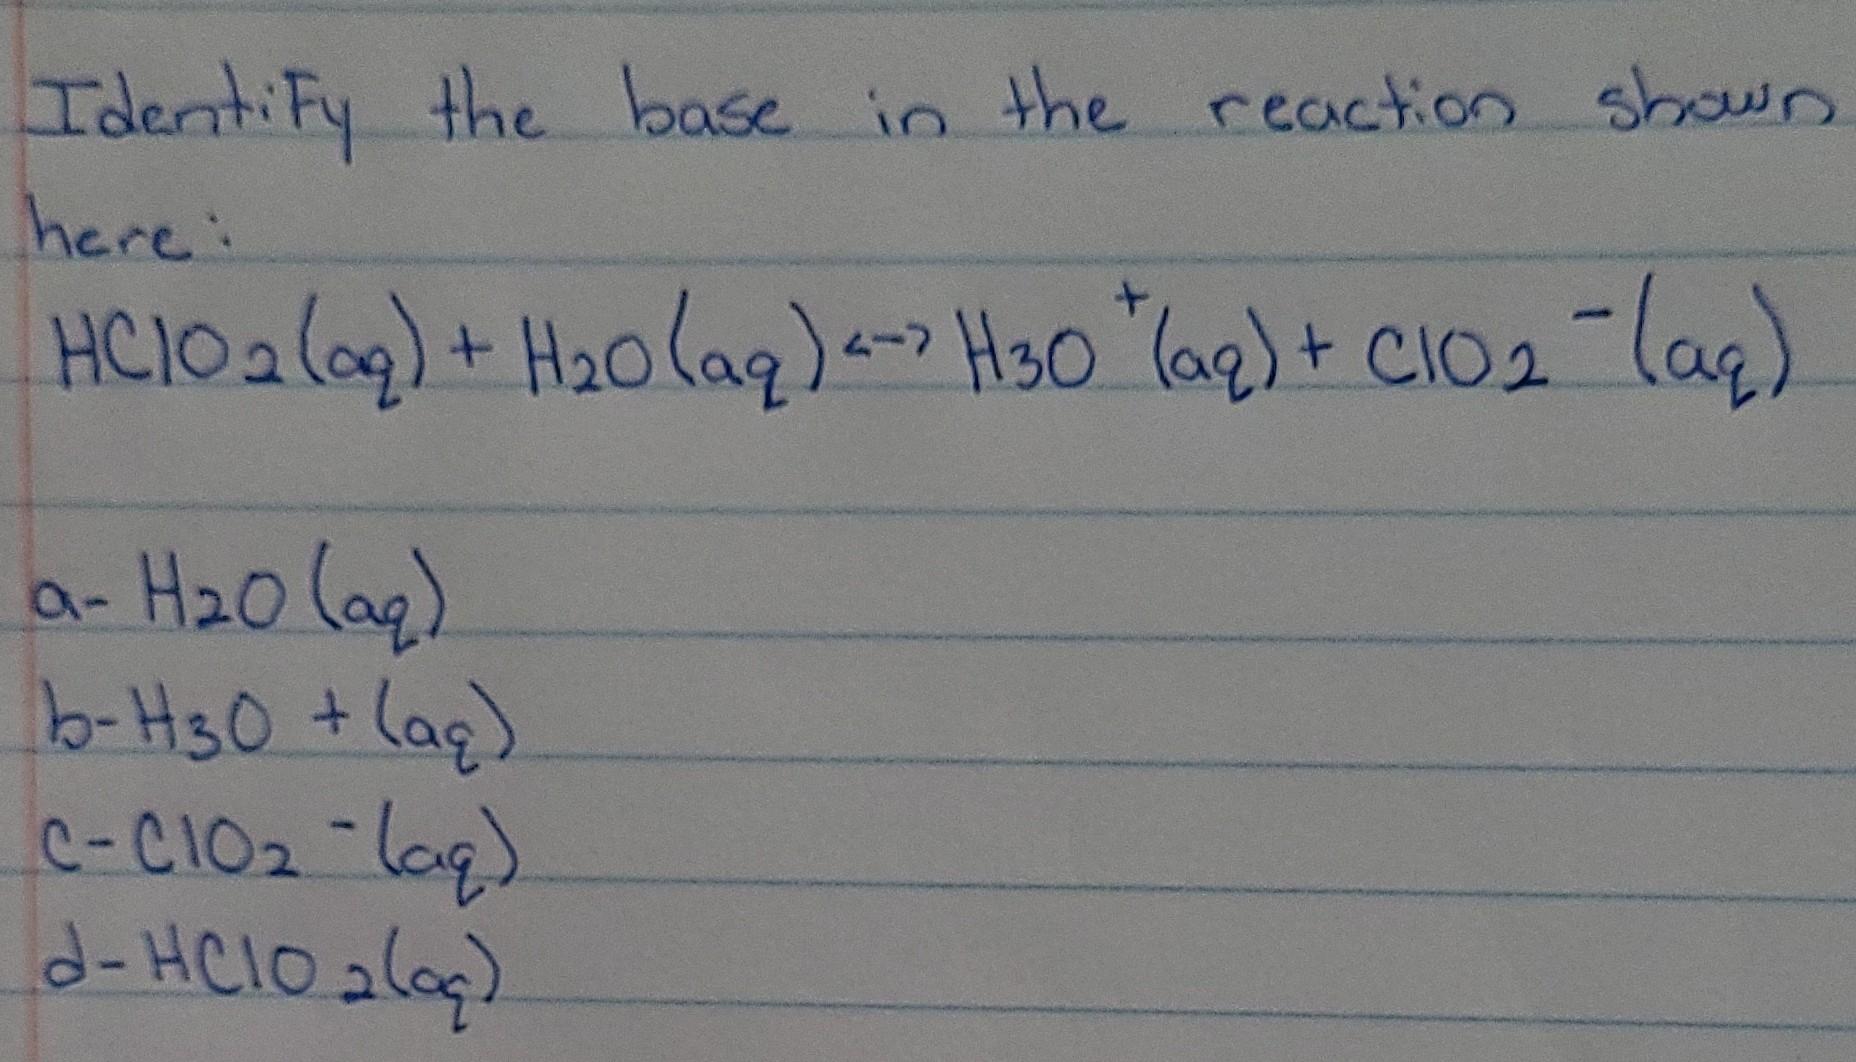 Identify the base in the reaction shown
here:
HClO2(aq) + H2O(aq) <--> H3O⁺(aq) + ClO2⁻(aq)
a- H2O (aq)
b- H3O + (aq)
c- ClO2 ⁻(aq)
d- HClO2(aq)